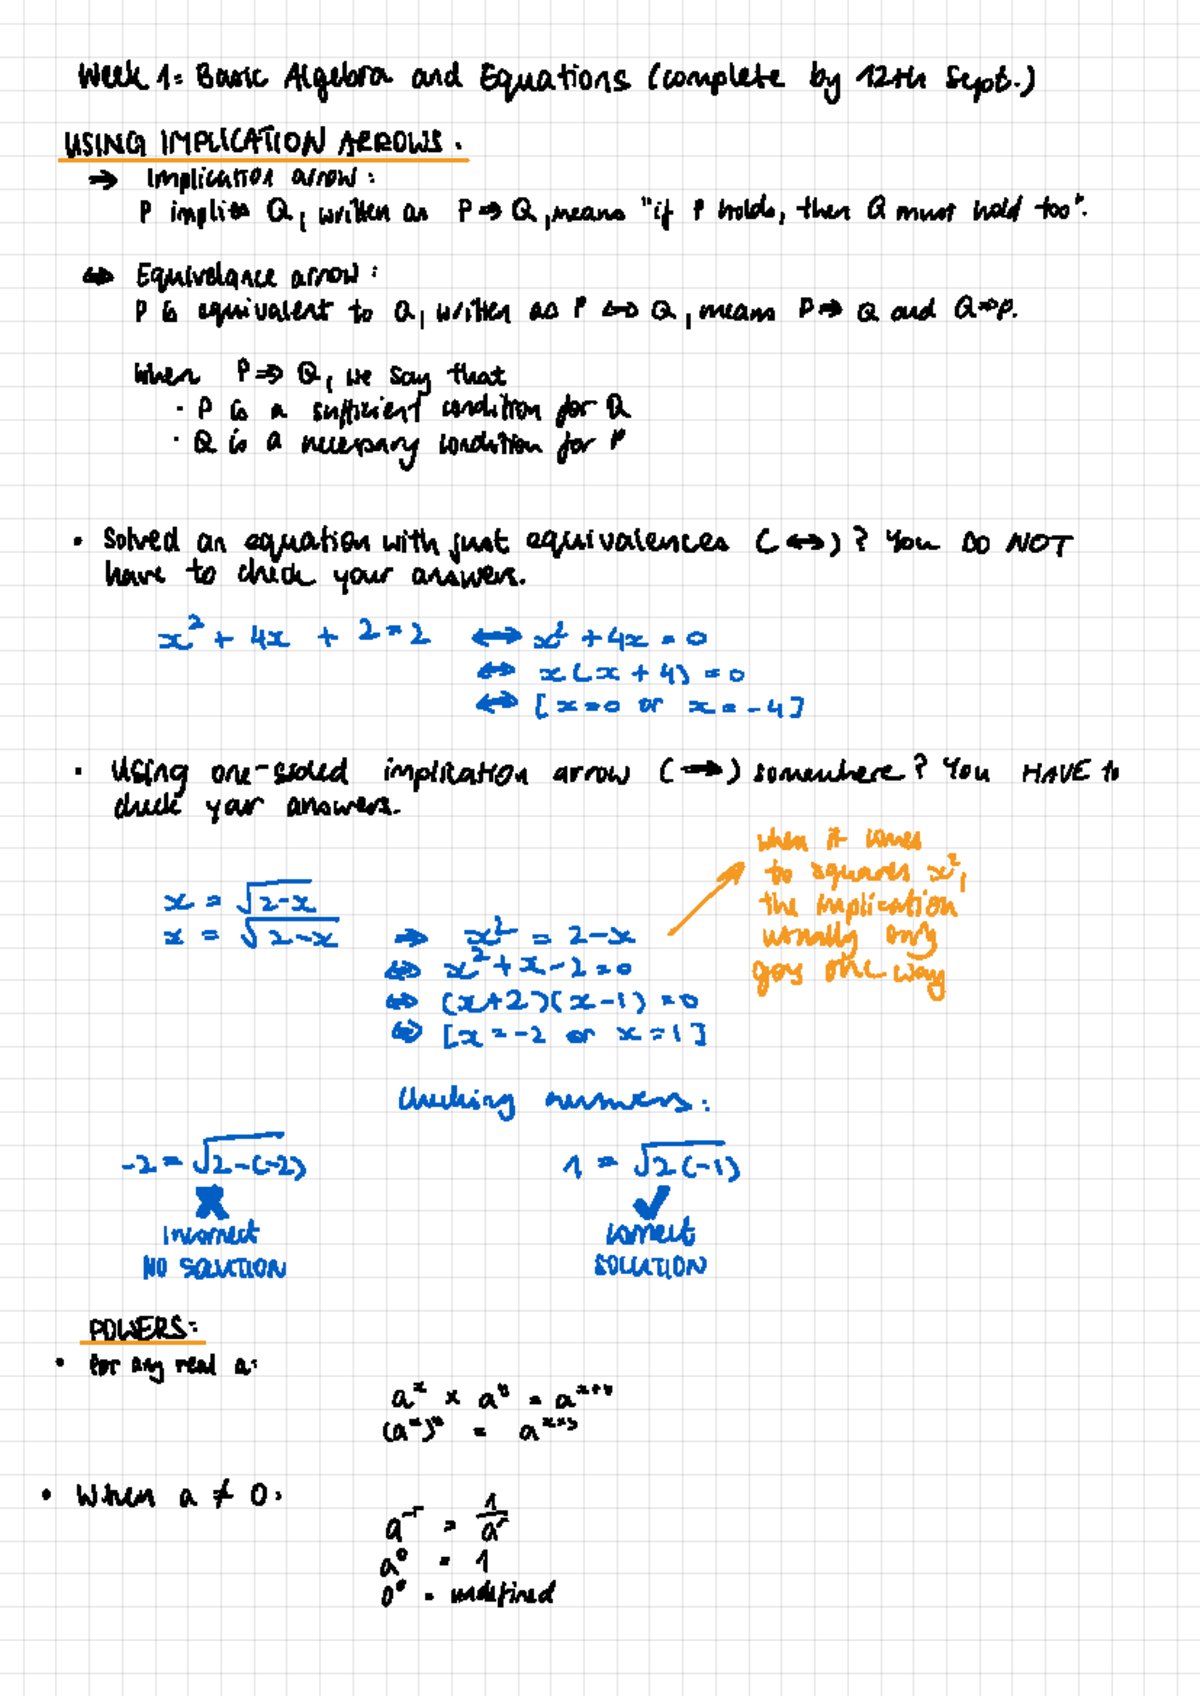 Week 1: Basic Algebra and Equations (complete by 12th Sept.)
USING IMPLICATION ARROWS.
⇒ Implication arrow:
P implies Q, written as P ⇒ Q, means "if P holds, then Q must hold too".
⇔ Equivelance arrow:
P is equivalent to Q, written as P ⇔ Q, means P ⇒ Q and Q ⇒ P.
When P ⇒ Q, we say that
· P is a sufficient condition for Q
· Q is a necessary condition for P
• Solved an equation with just equivalences (⇔)? You DO NOT
have to check your answers.
x² + 4x + 2 = 2 ⇔ x² + 4x = 0
⇔ x(x + 4) = 0
⇔ [x = 0 or x = -4]
· Using one-sided implication arrow (⇒) somewhere? You HAVE to
check your answers.
when it comes
to squares x²,
the implication
usually only
goes one way
x = √2-x
x = √2-x ⇒ x² = 2-x
⇔ x² + x - 2 = 0
⇔ (x+2)(x-1) = 0
⇔ [x = -2 or x = 1]
Checking answers:
-2 = √2-(-2) 1 = √2(-1)
✗ ✓
Incorrect correct
NO SOLUTION SOLUTION
POWERS:
• For any real a:
aˣ × aʸ = aˣ⁺ʸ
(aˣ)ʸ = aˣˣʸ
• When a ≠ 0:
a⁻ʳ = 1/aʳ
a⁰ = 1
0⁰ = undefined